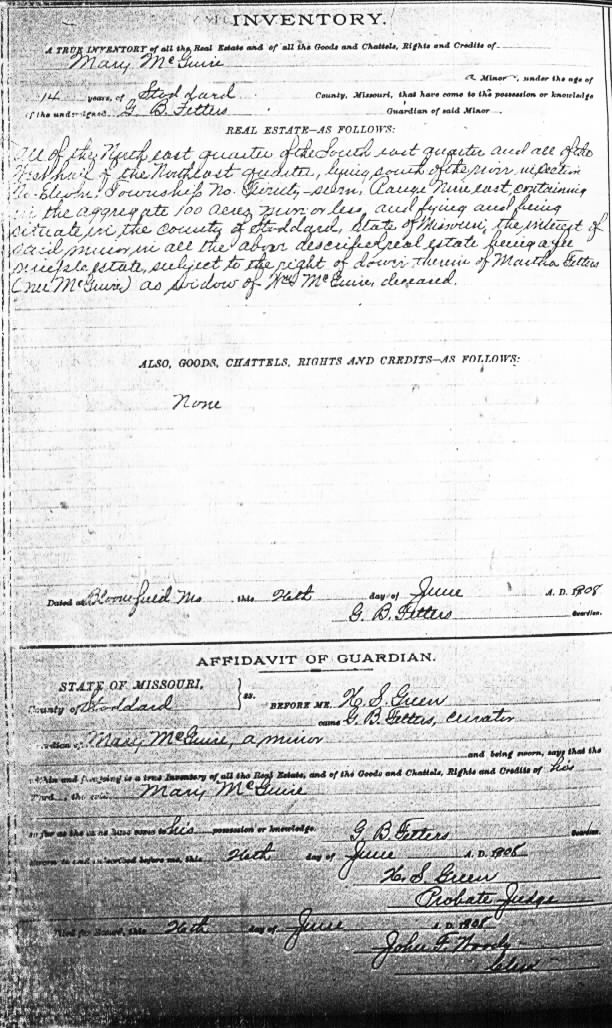 INVENTORY.
A TRUE INVENTORY of all the Real Estate and of all the Goods and Chattels, Rights and Credits of
Mary McGuire
a Minor, under the age of
14 years, of Stoddard County, Missouri, that have come to the possession or knowledge
of the undersigned, G. B. Fetters Guardian of said Minor
REAL ESTATE—AS FOLLOWS:
All of the North east quarter of the South east quarter and all of the
half of the Northeast quarter, lying south of the river, in section
No. Eleven, Township No. Twenty-seven, Range Nine east, containing
in the aggregate 100 acres, more or less, and lying and being
situate in the county of Stoddard, State of Missouri, the interest of
said minor in all the above described real estate being a fee
simple estate, subject to the right of dower therein of Martha Fetters
(nee McGuire) as widow of Wm McGuire, deceased.
ALSO, GOODS, CHATTELS, RIGHTS AND CREDITS—AS FOLLOWS:
None
Dated at Bloomfield Mo this 26th day of June A. D. 1908
G. B. Fetters Guardian.
AFFIDAVIT OF GUARDIAN.
STATE OF MISSOURI,
County of Stoddard } ss. BEFORE ME, H. S. Green
came G. B. Fetters, curator
Guardian of Mary McGuire, a minor
and being sworn, says that the
within and foregoing is a true Inventory of all the Real Estate, and of the Goods and Chattels, Rights and Credits of his
Ward, the said Mary McGuire
so far as the same have come to his possession or knowledge.
G. B. Fetters Guardian.
Sworn to and subscribed before me, this 26th day of June A. D. 1908
H. S. Green
Probate Judge
Filed for Record, this 26th day of June A. D. 1908
John F. Moody
Clerk